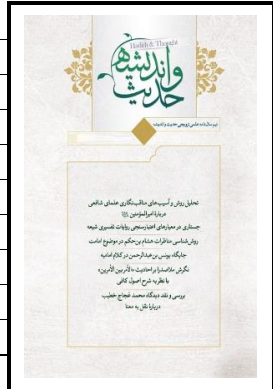 Hadith & Thought
حدیث و اندیشه
دو فصلنامه علمی ترویجی حدیث و اندیشه
تحلیل روش و آسیب‌های مناقب‌نگاری علمای شافعی
درباره امیرالمؤمنین
جستاری در معیارهای اعتبارسنجی روایات تفسیری شیعه
روش‌شناسی مناظرات هشام بن‌حکم در موضوع امامت
جایگاه یونس بن‌عبدالرحمن در کلام امامیه
نگرش ملاصدرا بر احادیث «الأمر بین الأمرین»
با نظر به شرح اصول کافی
بررسی و نقد دیدگاه محمد عجاج خطیب
درباره نقل به معنا